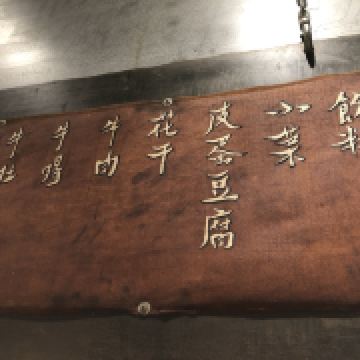 飲料
小菜
皮蛋豆腐
花干
牛肉
牛腸
牛肚